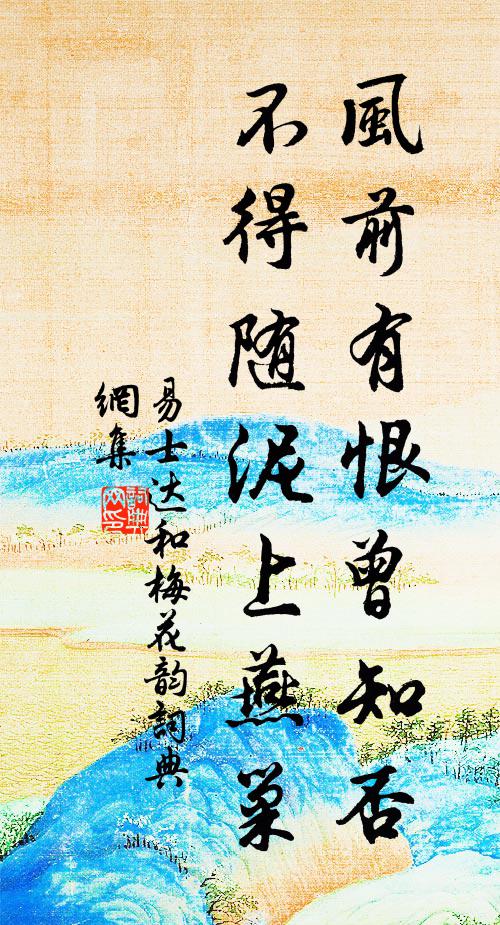 風前有恨曾知否
不得随泥上燕巢
易士达和梅花韵詞典
網集
詞典
网印